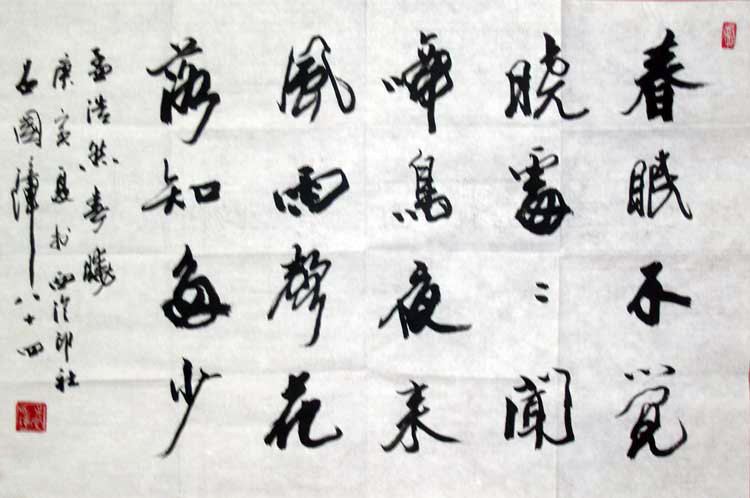 春眠不覺
晓處〻聞
啼鳥夜来
風雨聲花
落知多少
孟浩然春曉
庚寅夏於西泠印社
呂國璋八十四